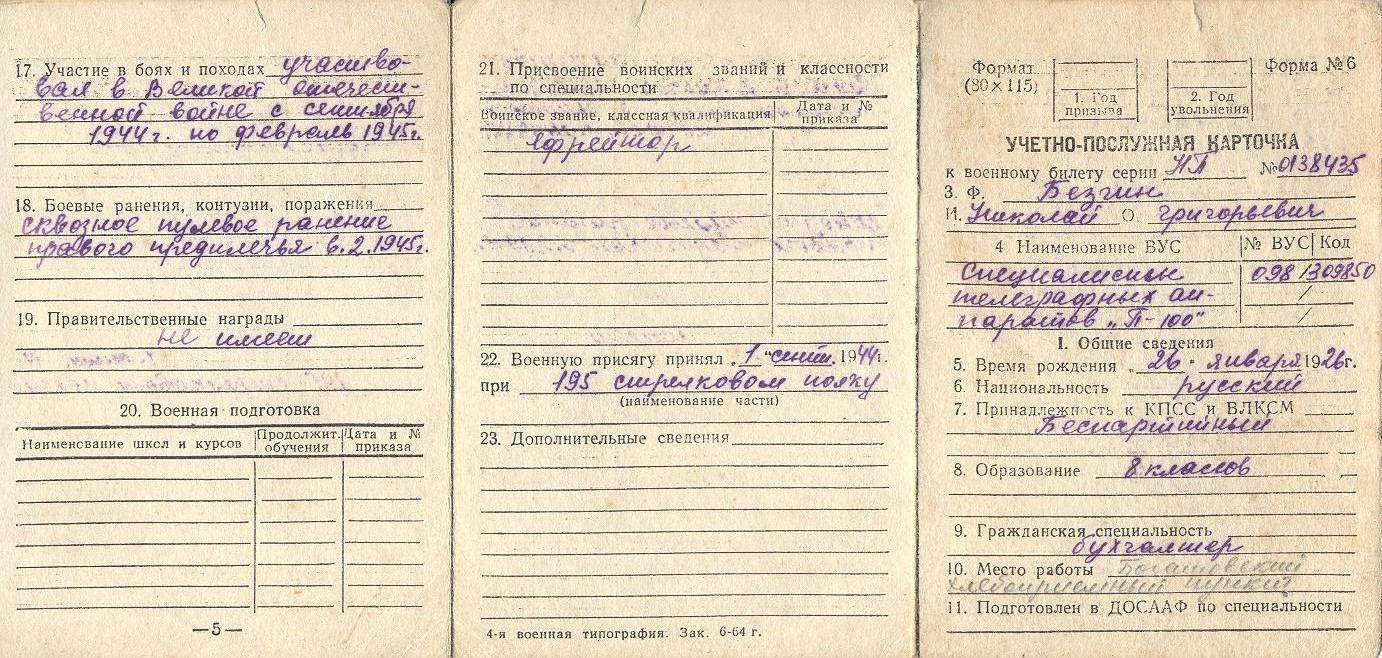 17. Участие в боях и походах участво-
вал в Великой отечест-
венной войне с сентября
1944г. по февраль 1945г.
18. Боевые ранения, контузии, поражения
сквозное пулевое ранение
правого предплечья 6.2.1945г.
19. Правительственные награды
не имеет
20. Военная подготовка
Наименование школ и курсов
Продолжит. обучения
Дата и № приказа
—5—
21. Присвоение воинских званий и классности
по специальности
Воинское звание, классная квалификация
Дата и № приказа
Ефрейтор
22. Военную присягу принял „1" сент. 1944г.
при 195 стрелковом полку
(наименование части)
23. Дополнительные сведения
4-я военная типография. Зак. 6-64 г.
Формат
(80×115)
1. Год
призыва
2. Год
увольнения
Форма №6
УЧЕТНО-ПОСЛУЖНАЯ КАРТОЧКА
к военному билету серии НП №0138435
3. Ф. Безгин
И. Николай О. Григорьевич
4 Наименование ВУС № ВУС Код
Специалист 098/309850
телеграфных ап-
паратов „П-100"
I. Общие сведения
5. Время рождения „26" января 1926г.
6. Национальность русский
7. Принадлежность к КПСС и ВЛКСМ
Беспартийный
8. Образование 8 классов
9. Гражданская специальность
бухгалтер
10. Место работы
хлебоприемный пункт
11. Подготовлен в ДОСААФ по специальности